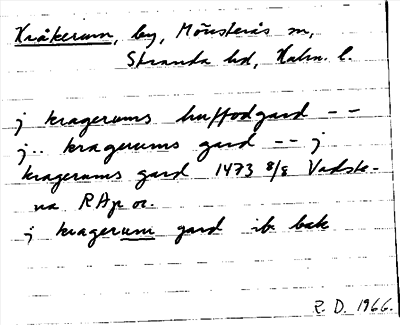 Kråkerum, by, Mönsterås sn,
Stranda hd, Kalm. l.
j kragerums huffodgard - -
j.. kragerums gard - - j
kragerums gard 1473 8/8 Vadste-
na RAp or.
j kragerum gard ib. bak
R. D. 1966.